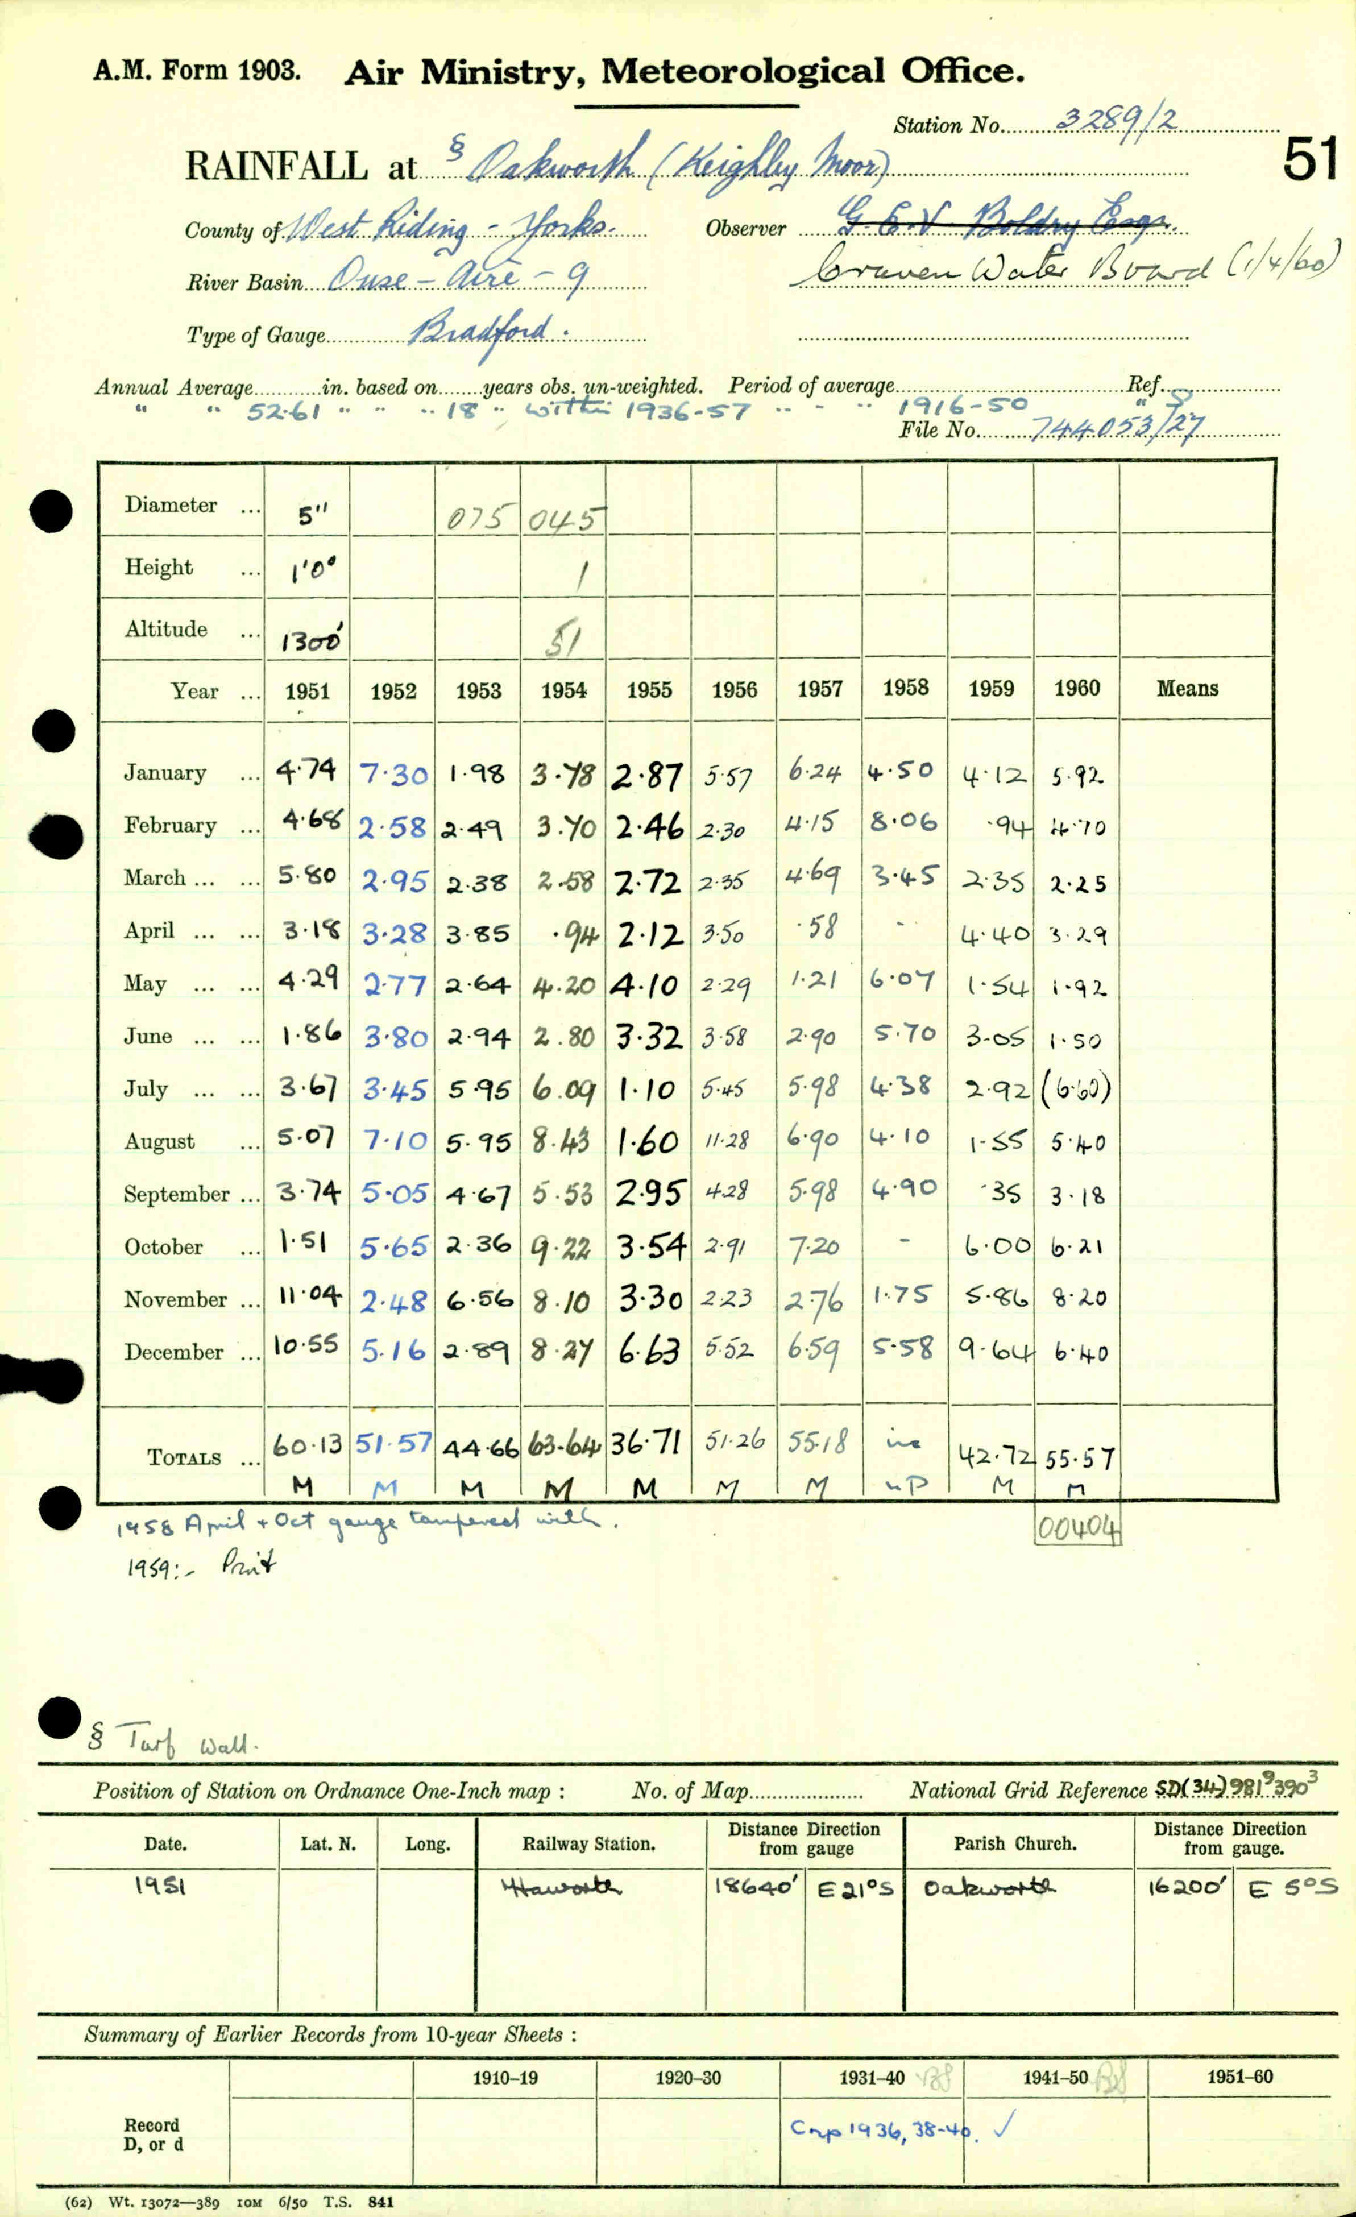 A.M. Form 1903. Air Ministry, Meteorological Office.
Station No. 3289/2
51
RAINFALL at § Oakworth (Keighley Moor)
County of West Riding - Yorks. Observer G. E. V. Boldry Esq.
Craven Water Board (1/4/60)
River Basin Ouse - Aire - 9
Type of Gauge Bradford.
Annual Average in. based on years obs. un-weighted. Period of average Ref.
" " 52.61 " " " 18 " within 1936-57 " - " 1916-50 "
File No. 744053/27
Diameter ... 5" 075 045
Height ... 1'0" 1
Altitude ... 1300' 51
Year ... 1951 1952 1953 1954 1955 1956 1957 1958 1959 1960 Means
January ... 4.74 7.30 1.98 3.78 2.87 5.57 6.24 4.50 4.12 5.92
February ... 4.68 2.58 2.49 3.70 2.46 2.30 4.15 8.06 .94 4.70
March ... ... 5.80 2.95 2.38 2.58 2.72 2.35 4.69 3.45 2.35 2.25
April ... ... 3.18 3.28 3.85 .94 2.12 3.50 .58 - 4.40 3.29
May ... ... 4.29 2.77 2.64 4.20 4.10 2.29 1.21 6.07 1.54 1.92
June ... ... 1.86 3.80 2.94 2.80 3.32 3.58 2.90 5.70 3.05 1.50
July ... ... 3.67 3.45 5.95 6.09 1.10 5.45 5.98 4.38 2.92 (6.60)
August ... 5.07 7.10 5.95 8.43 1.60 11.28 6.90 4.10 1.55 5.40
September ... 3.74 5.05 4.67 5.53 2.95 4.28 5.98 4.90 .35 3.18
October ... 1.51 5.65 2.36 9.22 3.54 2.91 7.20 - 6.00 6.21
November ... 11.04 2.48 6.56 8.10 3.30 2.23 2.76 1.75 5.86 8.20
December ... 10.55 5.16 2.89 8.27 6.63 5.52 6.59 5.58 9.64 6.40
TOTALS ... 60.13 51.57 44.66 63.64 36.71 51.26 55.18 inc 42.72 55.57
M M M M M M M nP M M
1958 April + Oct gauge tampered with.
00404
1959:- Print
§ Turf Wall.
Position of Station on Ordnance One-Inch map : No. of Map National Grid Reference SD(34)981⁹390³
Date. Lat. N. Long. Railway Station. Distance from gauge Direction Parish Church. Distance from gauge. Direction
1951 Haworth 18640' E 21°S Oakworth 16200' E 5°S
Summary of Earlier Records from 10-year Sheets :
1910–19 1920–30 1931–40 1941–50 1951–60
Record
D, or d
Cmp 1936, 38-40. ✓
(62) Wt. 13072—389 10M 6/50 T.S. 841